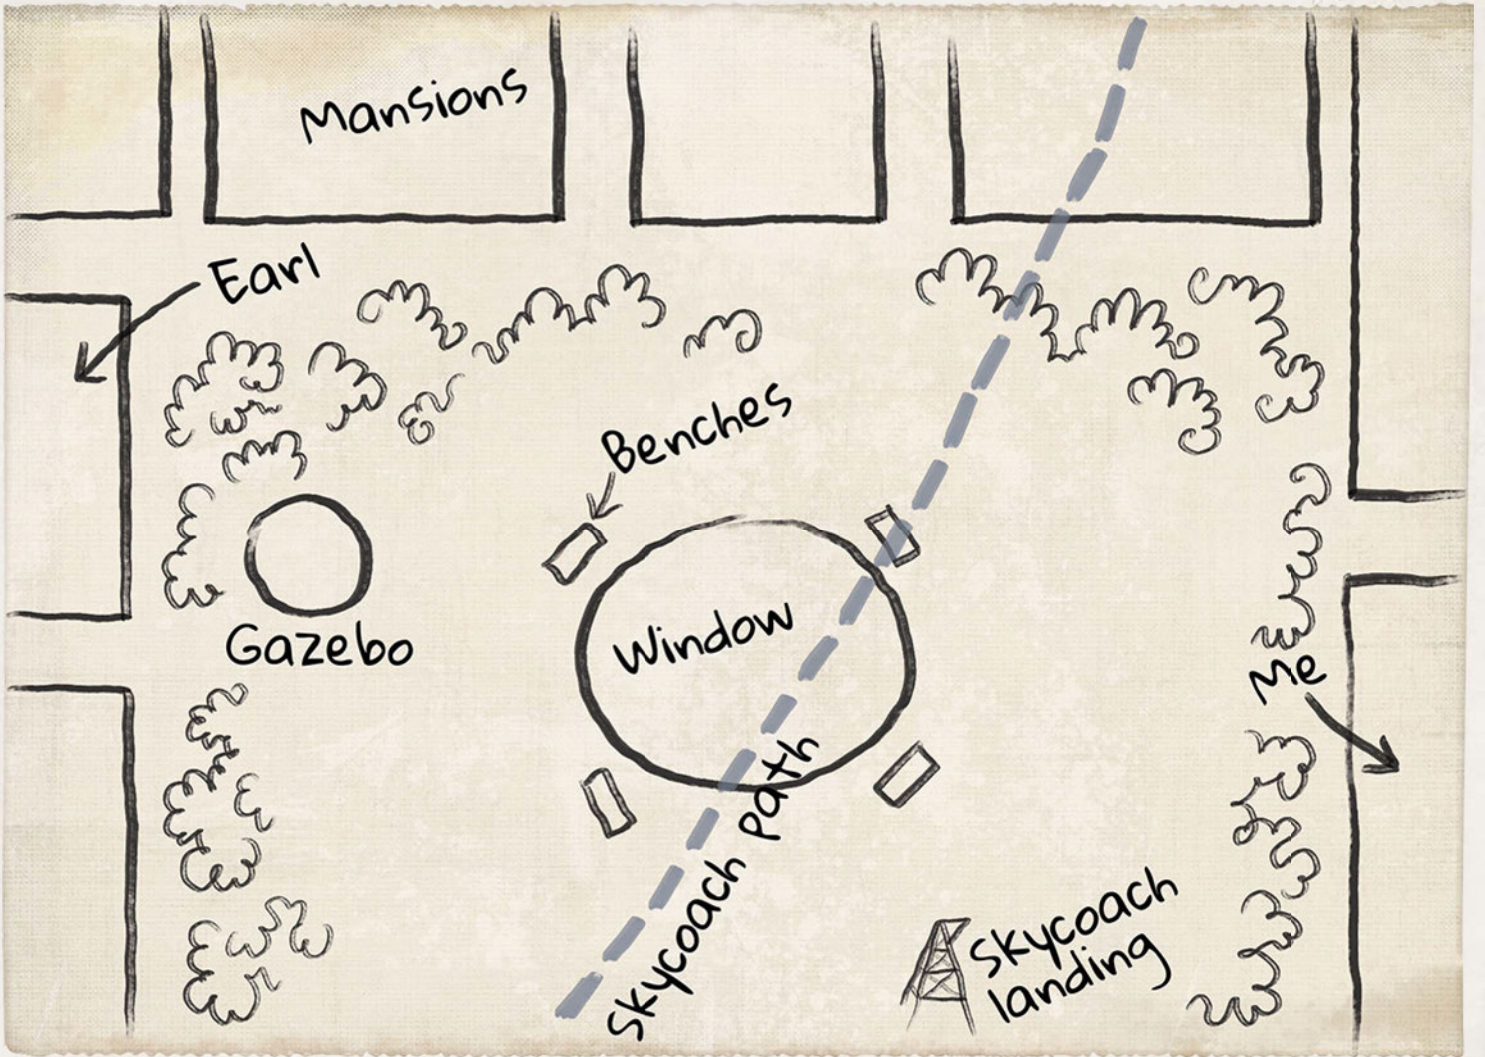 Mansions
Earl
Benches
Window
Gazebo
Me
Skycoach Path
Skycoach
landing